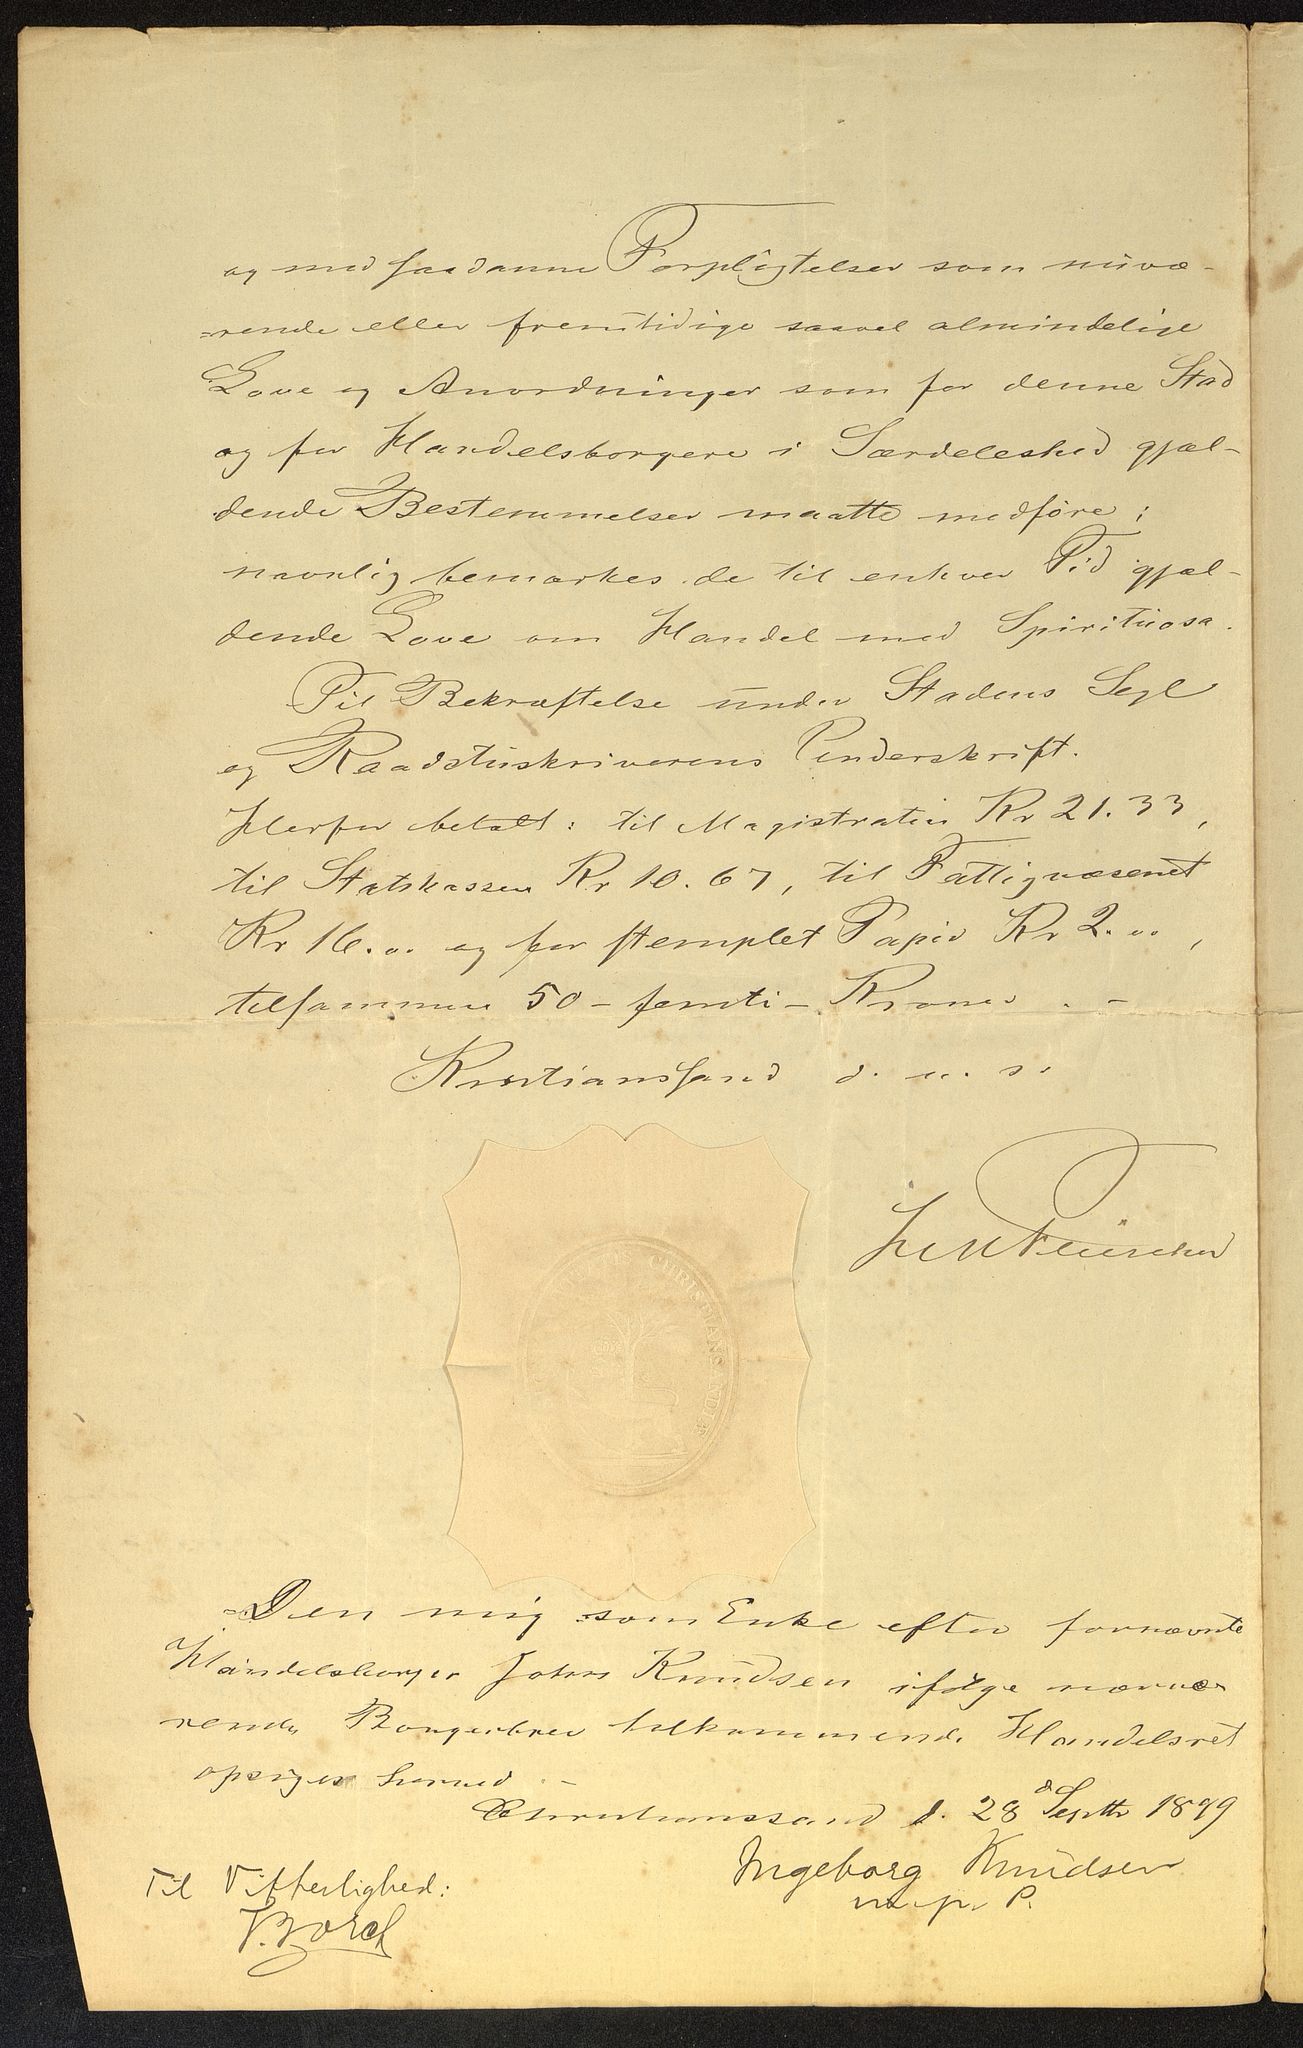 og med saadanne Forpligtelser som nuvæ-
=rende eller fremtidige saavel almindelige
Love og Anordninger som for denne Stad
og for Handelsborgere i Særdeleshed gjæl-
dende Bestemmelser maatte medføre;
navnlig bemærkes de til enhver Tid gjæl-
dende Love om Handel med Spirituosa.
Til Bekræftelse under Stadens Segl
og Raadstuskriverens Underskrift.
Herfor betalt: til Magistraten Kr 21.33,
til Statskassen Kr 10.67, til Fattigvæsenet
Kr 16.00 og for stemplet Papir Kr 2.00,
tilsammen 50 - femti - Kroner. -
Kristianssand d. u. s.
CHRISTIANSAND
Den mig som Enke efter fornævnte
Handelsborger John Knudsen ifølge nærvæ-
rende Borgerbrev tilkommende Handelsret
opsiges herved. -
Christianssand d. 28 d Septbr 1899
Ingeborg Knudsen
m. p. P.
Til Vitterlighed:
V. Borch